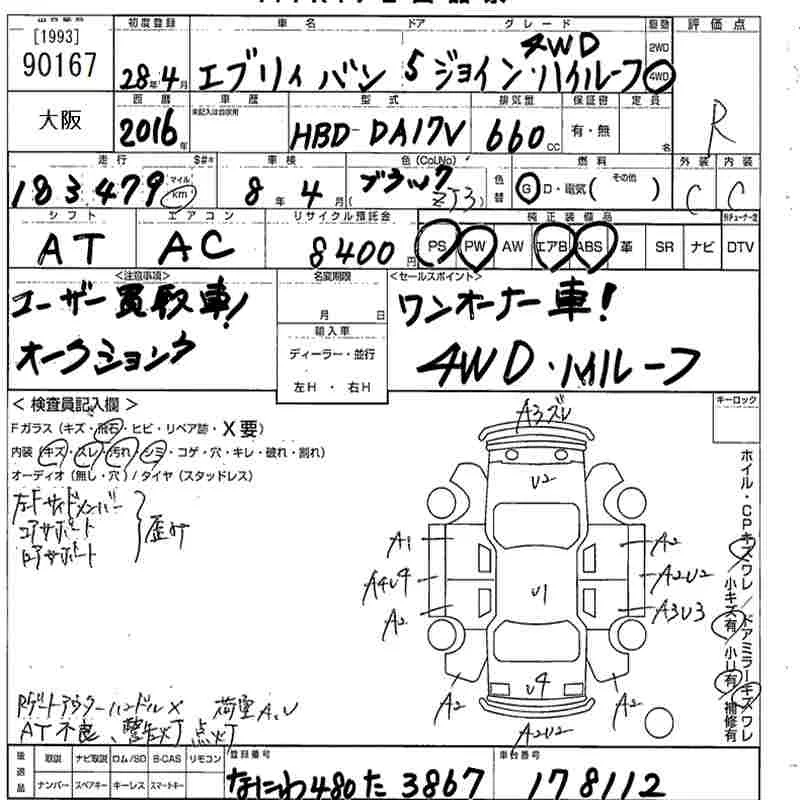 出品番号 初度登録 車名 ドア グレード 駆動 評価点
[1993]
90167 28年4月 エブリィ バン 5 ジョイン・ハイルーフ 4WD 2WD 4WD R
大阪 西暦 車歴 型式 排気量 保証書 定員
未記入は自家用
2016年 HBD-DA17V 660cc 有・無 名
走行 S#* 車検 色(Col.No) 燃料 外装 内装
183479 マイル km 8年4月 ( ブラック ZJ3) 色替 G D・電気( その他 ) C C
シフト エアコン リサイクル預託金 純正装備品
AT AC 8400円 PS PW AW エアB ABS 革 SR ナビ DTV
<注意事項> 名変期限 <セールスポイント>
ユーザー買取車! 月 日 ワンオーナー車!
オークション 輸入車 4WD・ハイルーフ
ディーラー・並行
左H ・ 右H
< 検査員記入欄 > キーロック
Fガラス(キズ・飛石・ヒビ・リペア跡・X要)
内装(キズ・スレ・汚れ・シミ・コゲ・穴・キレ・破れ・割れ)
オーディオ(無し・穴)/タイヤ(スタッドレス)
左Fサイドメンバー
コアサポート
ロアサポート
歪み
A3ズレ
U2
A1 A2
A4U4 U1 A2U2
A2 A3U3
U4
A2 A2
A2U2
ホイル・CPキズワレ/ドアミラーキズワレ
小キズ有/小U有/補修有
Rゲートアウターハンドル× 荷室A、U
AT不良、警告灯点灯
後送品 取説 ナビ取説 ロム/SD B-CAS リモコン 登録番号 車台番号
ナンバー スペアキー キーレス スマートキー なにわ480た3867 178112